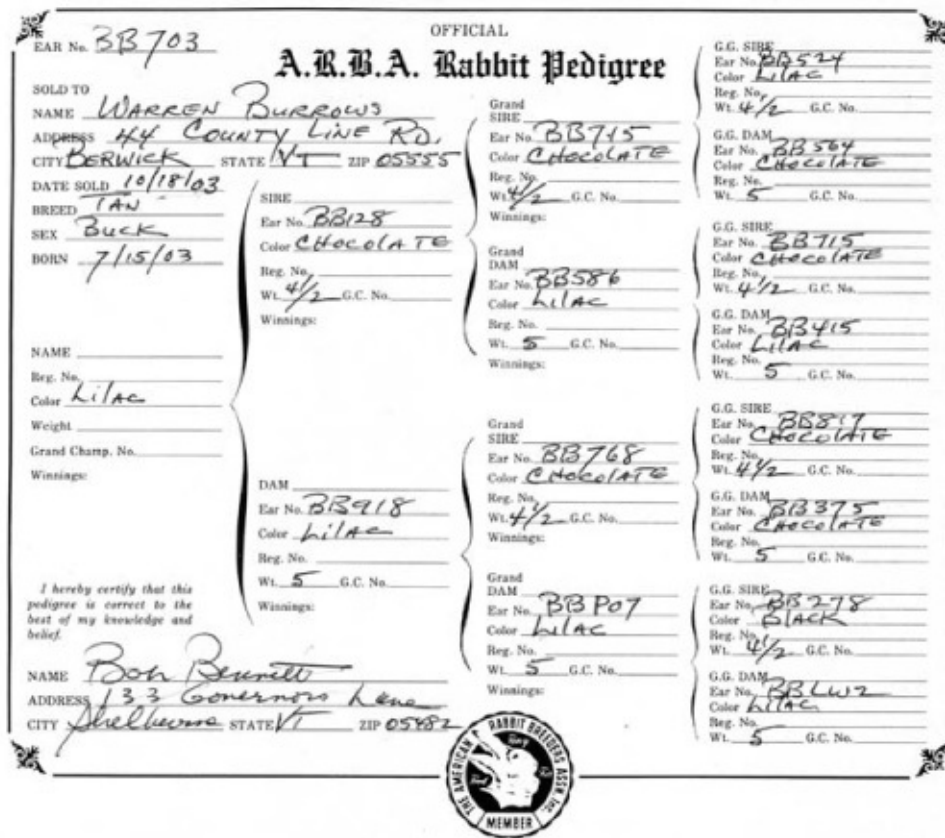 OFFICIAL
A.R.B.A. Rabbit Pedigree
EAR No. BB703
SOLD TO
NAME WARREN BURROWS
ADDRESS 44 COUNTY LINE RD.
CITY BERWICK STATE VT ZIP 05555
DATE SOLD 10/18/03
BREED TAN
SEX BUCK
BORN 7/15/03
NAME
Reg. No.
Color LiLAC
Weight
Grand Champ. No.
Winnings:
I hereby certify that this
pedigree is correct to the
best of my knowledge and
belief.
NAME Bob Bennett
ADDRESS 133 Governors Lane
CITY Shelburne STATE VT ZIP 05482
SIRE
Ear No. BB128
Color CHOCOLATE
Reg. No.
Wt. 4 1/2 G.C. No.
Winnings:
DAM
Ear No. BB918
Color LiLAC
Reg. No.
Wt. 5 G.C. No.
Winnings:
Grand
SIRE
Ear No. BB715
Color CHOCOLATE
Reg. No.
Wt. 4 1/2 G.C. No.
Winnings:
Grand
DAM
Ear No. BB586
Color LiLAC
Reg. No.
Wt. 5 G.C. No.
Winnings:
Grand
SIRE
Ear No. BB768
Color CHOCOLATE
Reg. No.
Wt. 4 1/2 G.C. No.
Winnings:
Grand
DAM
Ear No. BB P07
Color LiLAC
Reg. No.
Wt. 5 G.C. No.
Winnings:
G.G. SIRE
Ear No. BB524
Color LILAC
Reg. No.
Wt. 4 1/2 G.C. No.
G.G. DAM
Ear No. BB564
Color CHOCOLATE
Reg. No.
Wt. 5 G.C. No.
G.G. SIRE
Ear No. BB715
Color CHOCOLATE
Reg. No.
Wt. 4 1/2 G.C. No.
G.G. DAM
Ear No. BB415
Color LiLAC
Reg. No.
Wt. 5 G.C. No.
G.G. SIRE
Ear No. BB817
Color CHOCOLATE
Reg. No.
Wt. 4 1/2 G.C. No.
G.G. DAM
Ear No. BB375
Color CHOCOLATE
Reg. No.
Wt. 5 G.C. No.
G.G. SIRE
Ear No. BB278
Color BLACK
Reg. No.
Wt. 4 1/2 G.C. No.
G.G. DAM
Ear No. BBLW2
Color LiLAC
Reg. No.
Wt. 5 G.C. No.
THE AMERICAN RABBIT BREEDERS ASSN. Inc.
MEMBER